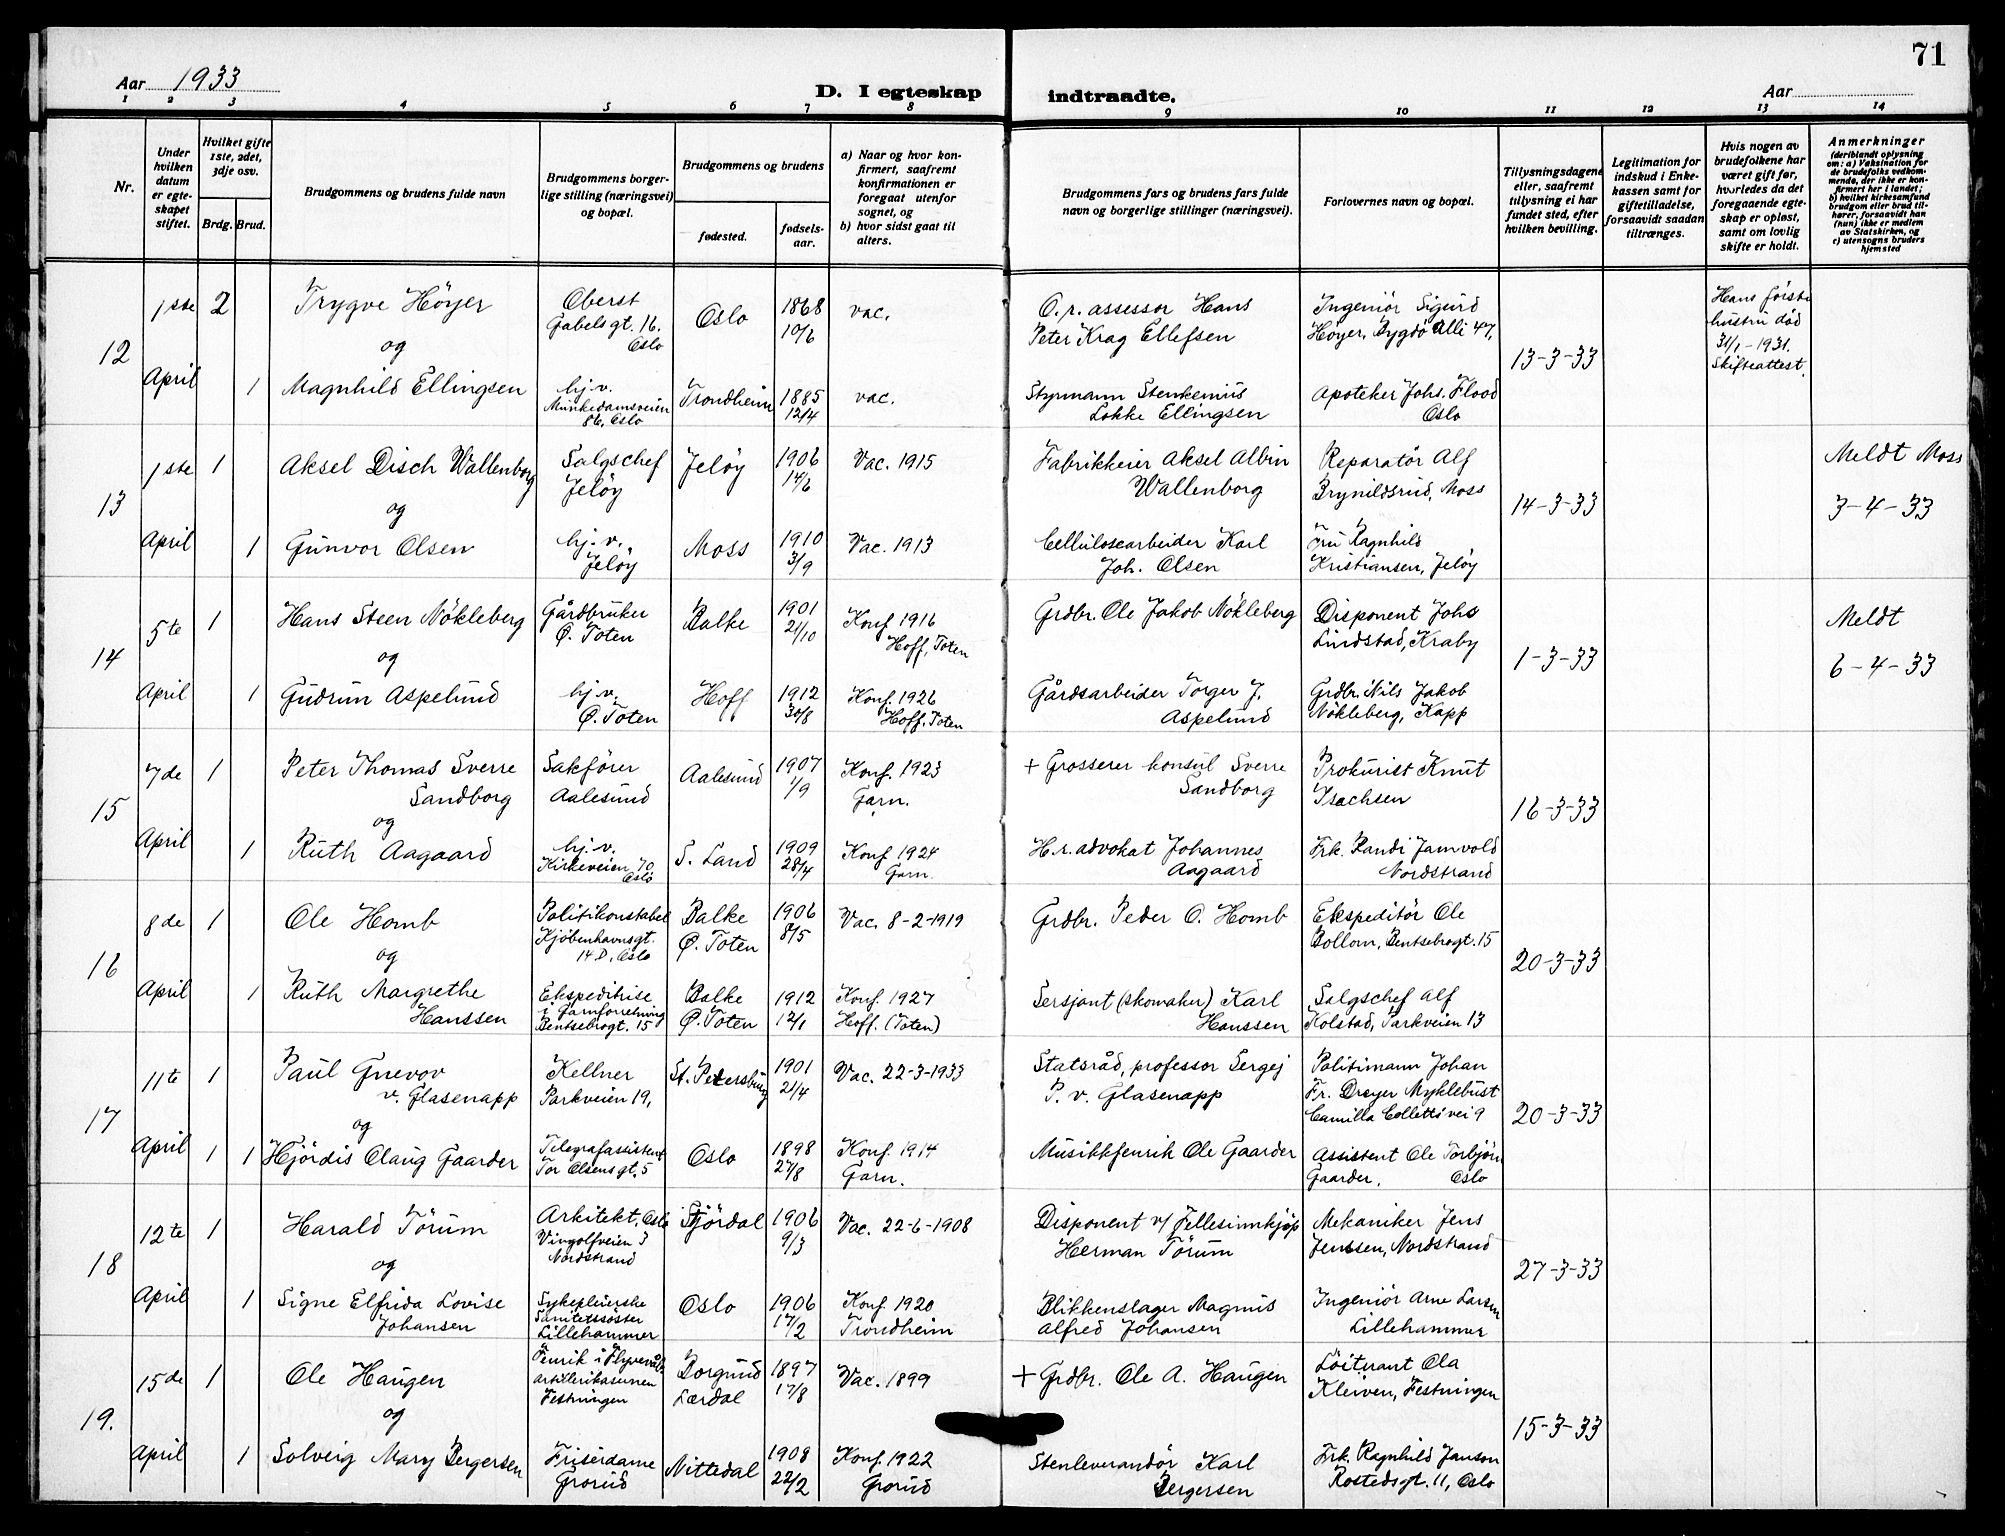 71
Aar 1933
D. I egteskap indtraadte.
Aar
1 2 3 4 5 6 7 8 9 10 11 12 13 14
Nr.
Under hvilken datum er egteskapet stiftet.
Hvilket gifte 1ste, 2det, 3dje osv.
Brdg. Brud.
Brudgommens og brudens fulde navn
Brudgommens borgerlige stilling (næringsvei) og bopæl.
Brudgommens og brudens
fødested.
fødselsaar.
a) Naar og hvor konfirmert, saafremt konfirmationen er foregaat utenfor sognet, og
b) hvor sidst gaat til alters.
Brudgommens fars og brudens fars fulde navn og borgerlige stillinger (næringsvei).
Forlovernes navn og bopæl.
Tillysningsdagene eller, saafremt tillysning ei har fundet sted, efter hvilken bevilling.
Legitimation for indskud i Enkekassen samt for giftetilladelse, forsaavidt saadan tiltrænges.
Hvis nogen av brudefolkene har været gift før, hvorledes da det foregaaende egteskap er opløst, samt om lovlig skifte er holdt.
Anmerkninger
(deriblandt oplysning om: a) Vaksination for de brudefolks vedkommende, der ikke er konfirmert her i landet;
b) hvilket kirkesamfund brudgom eller brud tilhører, forsaavidt han (hun) ikke er medlem av Statskirken, og
c) utensogns bruders hjemsted
12
1ste April
2
Trygve Höyer
og
1
Magnhild Ellingsen
Oberst
Gabelsgt. 16.
Oslo
hj.v.
Munkedamsveien
86, Oslo
Oslo
Trondheim
1868
10/6
1885
12/4
vac.
vac.
O.r. assessor Hans
Peter Krag Ellefsen
Styrmann Stenkenius
Lokke Ellingsen
Ingeniör Sigurd
Höyer, Bygdö Alli 47.
Apoteker Johs. Flood
Oslo
13-3-33
Hans förste
hustru död
31/1-1931.
Skifteattest.
13
1ste April
1
Aksel Disch Wallenborg
og
1
Gunvor Olsen
Salgschef
Jelöy
hj.v.
Jelöy
Jelöy
Moss
1906
14/6
1910
3/9
Vac. 1915
Vac. 1913
Fabrikkeier Aksel Albin
Wallenborg
Cellulosearbeider Karl
Joh. Olsen
Reparatör Alf
Brynildsrud, Moss
Fru Ragnhild
Kristiansen, Jelöy
14-3-33
Meldt Moss
3-4-33
14
5te April
1
Hans Steen Nökleberg
og
1
Gudrun Aspelund
Gårdbruker
Ø. Toten
hj.v.
Ø. Toten
Balke
Hoff
1901
21/10
1912
30/8
Konf. 1916
Hoff, Toten
Konf. 1926
Hoff, Toten
Grdbr. Ole Jakob Nökleberg
Gårdsarbeider Torger J.
Aspelund
Disponent Johs
Lindstad, Kraby
Grdbr. Nils Jakob
Nökleberg, Kapp
1-3-33
Meldt
6-4-33
15
7de April
1
Peter Thomas Sverre
Sandborg
og
1
Ruth Aagaard
Sakförer
Aalesund
hj.v.
Kirkeveien 70
Oslo
Aalesund
S. Land
1907
1/9
1909
28/4
Konf. 1923
Garn.
Konf. 1924
Garn.
+ Grosserer konsul Sverre
Sandborg
H.r.advokat Johannes
Aagaard
Prokurist Knut
Isachsen
Frk. Randi Jamvold
Nordstrand
16-3-33
16
8de April
1
Ole Homb
og
1
Ruth Margrethe
Hanssen
Politikonstabel
Kjöbenhavnsgt.
14 D, Oslo
Ekspeditrise
i Garnforretning
Bentsebrogt. 15
Balke
Ø. Toten
Balke
Ø. Toten
1906
8/5
1912
12/1
Vac. 8-2-1919
Konf. 1927
Hoff. (Toten)
Grdbr. Peder O. Homb
Sersjant (skomaker) Karl
Hanssen
Ekspeditör Ole
Bollom, Bentsebrogt. 15
Salgschef Alf
Kolstad, Parkveien 13
20-3-33
17
11te April
1
Paul Gnevov
v. Glasenapp
og
1 1
Hjördis Olaug Gaarder
Kellner
Parkveien 19,
Telegrafassistent
Tor Olsens gt. 5
St. Petersburg
Oslo
1901
21/4
1898
27/8
Vac. 22-3-1933
Konf. 1914
Garn.
Statsråd, professor Sergej
P. v. Glasenapp
Musikkfenrik Ole Gaarder
Politimann Johan
Fr. Dreyer Myklebust
Camilla Colletts vei 9
Assistent Ole Torbjörn
Gaarder. Oslo
20-3-33
18
12te April
1
Harald Törum
og
1
Signe Elfrida Lovise
Johansen
Arkitekt, Oslo
Vingolfveien 3
Nordstrand
Sykepleierske
Sanitetssöster
Lillehammer
Stjördal
Oslo
1906
9/3
1906
17/2
Vac. 22-6-1908
Konf. 1920
Trondheim
Disponent v/ Fellesinnkjöp
Herman Törum
Blikkenslager Magnus
Alfred Johansen
Mekaniker Jens
Jenssen, Nordstrand
Ingeniör Arne Larsen
Lillehammer
27-3-33
19.
15de April
1
Ole Haugen
og
1
Solveig Mary Bergersen
Fenrik i
Festningen
Frisördame
Grorud
Borgund
Lærdal
Nittedal
1897
17/8
1908
22/2
Vac. 1899
Konf. 1922
Grorud
+ Grdbr. Ole A. Haugen
Stenleverandör Karl
Bergersen
Löitnant Ola
Kleiven, Festningen
Frk. Ragnhild Janson
Rostedsgt. 11, Oslo
15-3-33